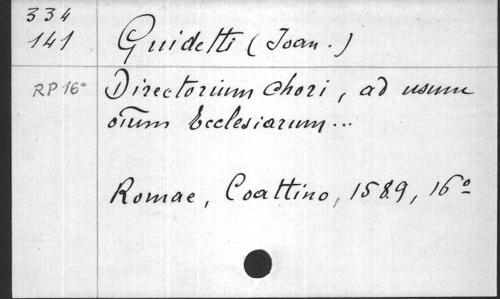 334
141
Guidetti (Joan.)
RP 16°
Directorium Chori, ad usum
oium Ecclesiarum...
Romae, Coattino, 1589, 16°